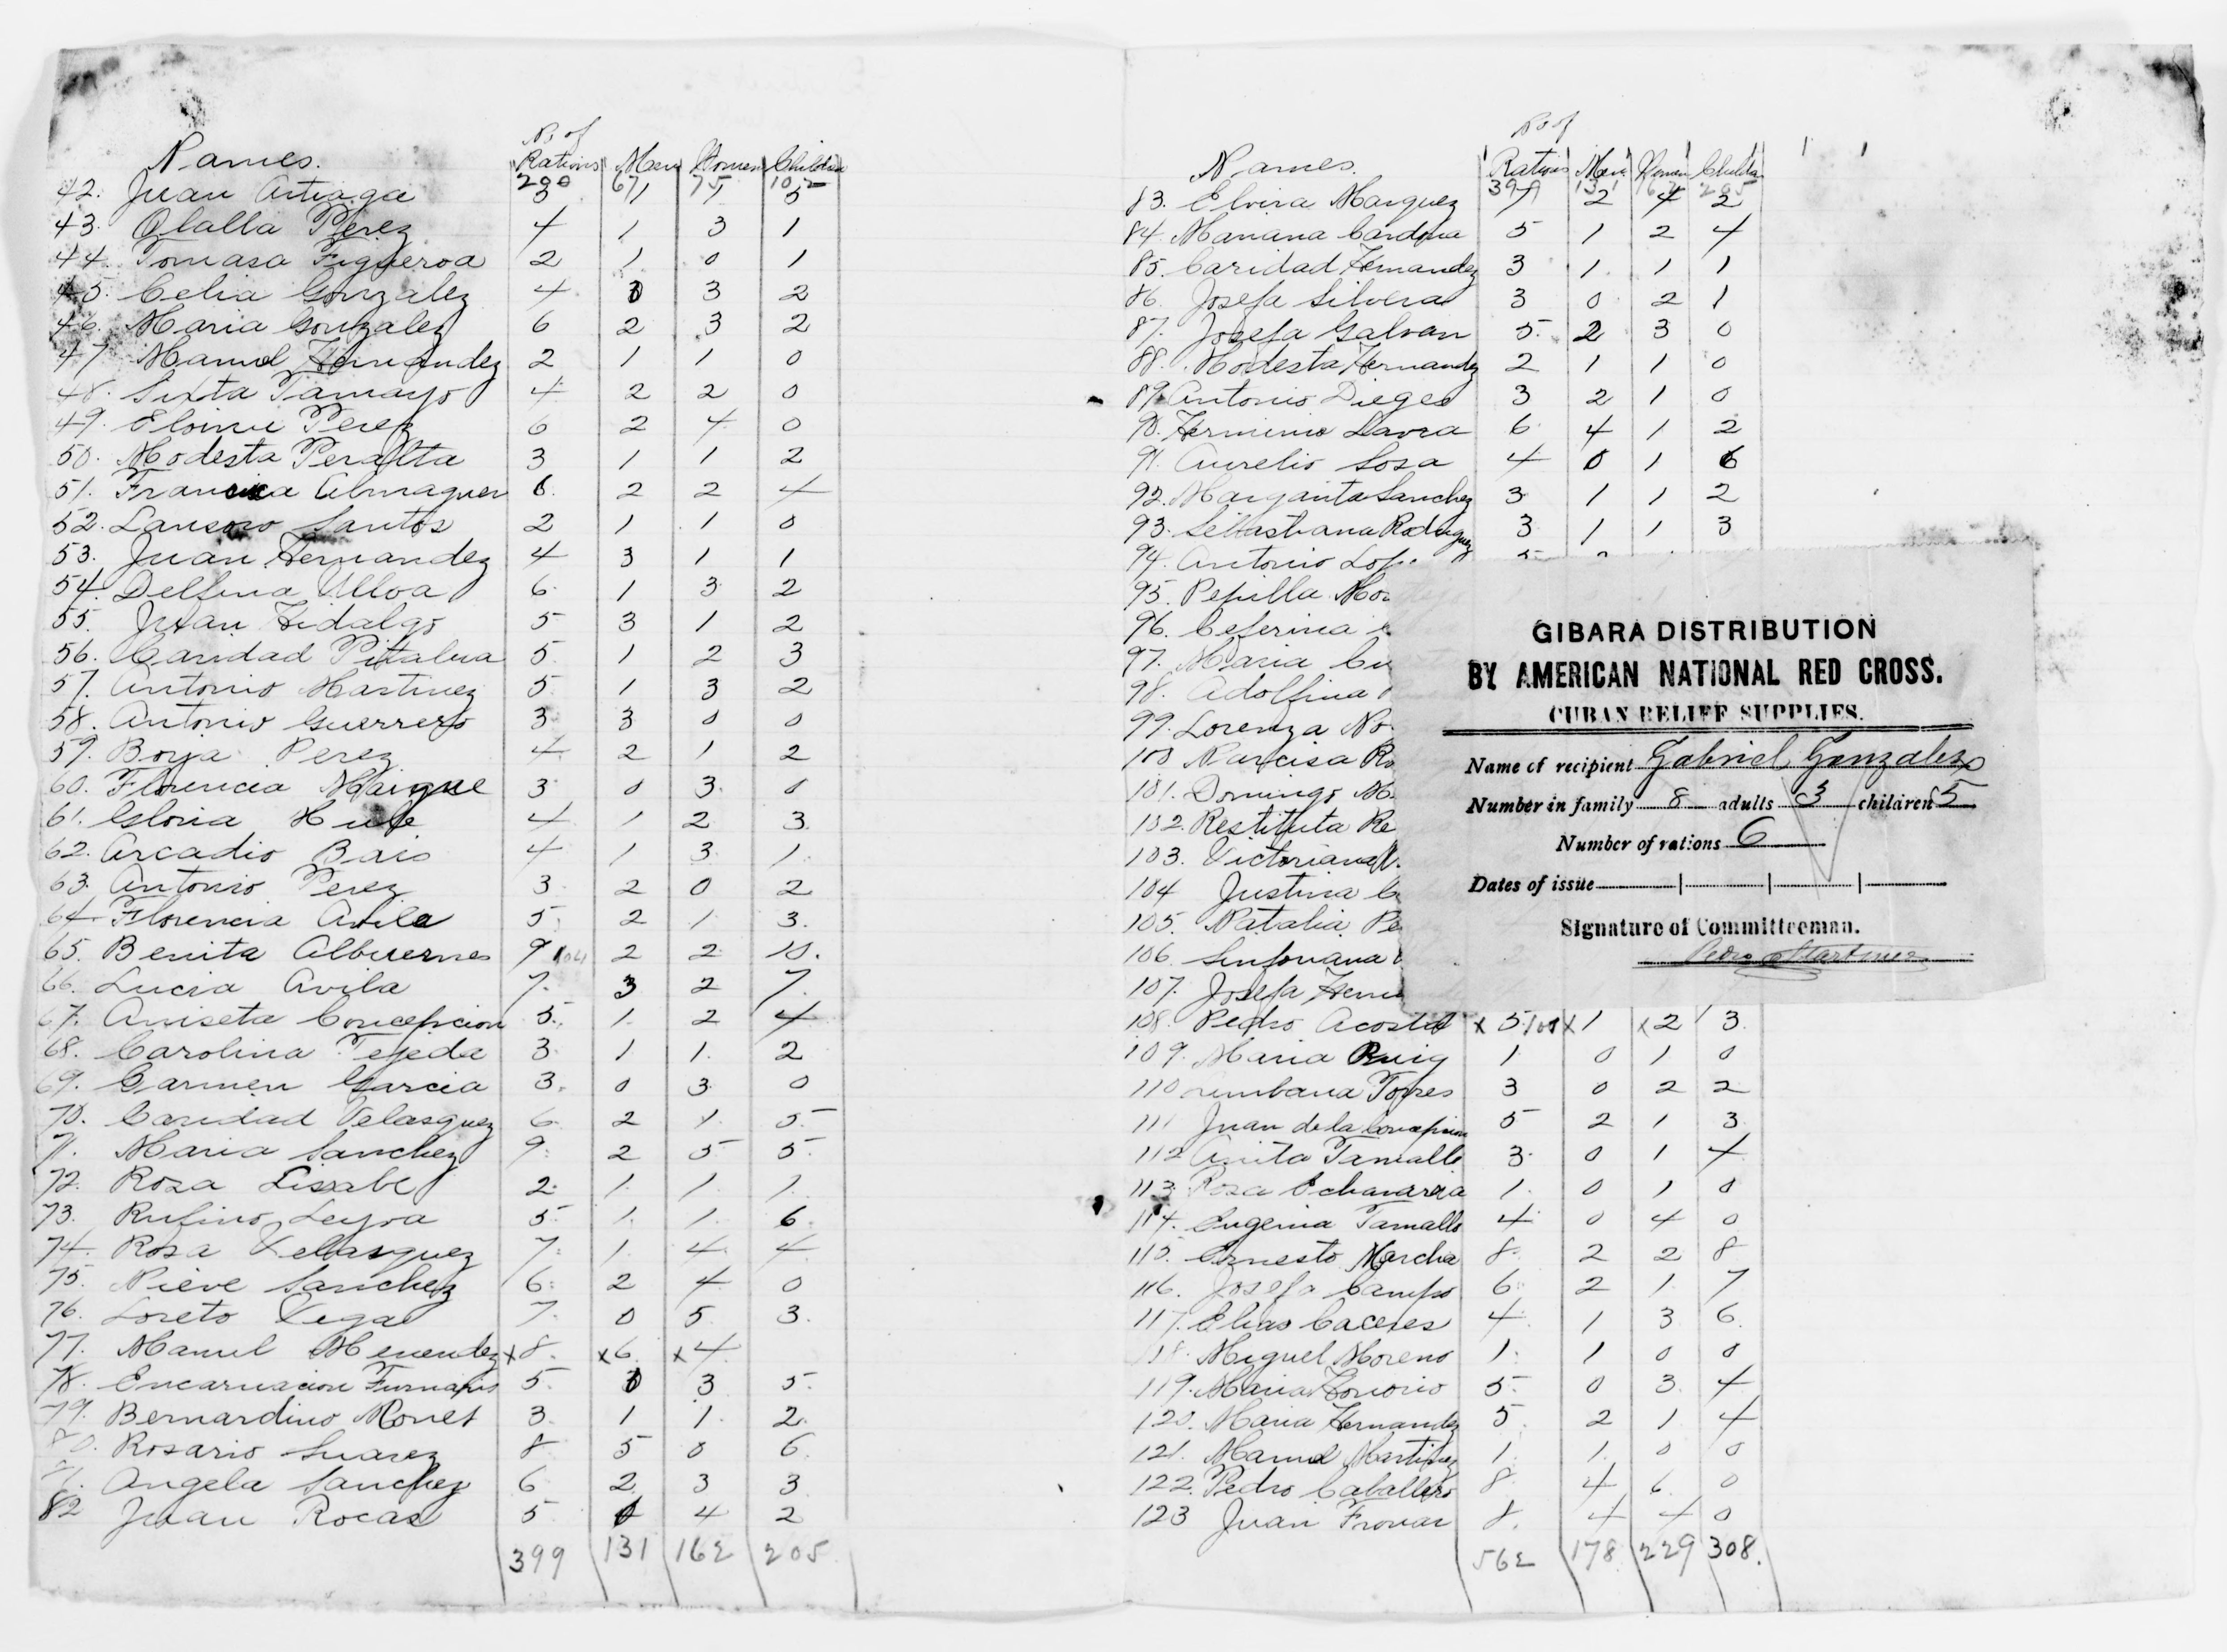 No of
Names. Rations Men Women Children
280 67 75 102
42. Juan Artiaga 3 1 1 3
43. Olalla Perez 4 1 3 1
44. Tomasa Figueroa 2 1 0 1
45. Celia Gonzalez 4 0 3 2
46. Maria Gonzalez 6 2 3 2
47. Manuel Hernandez 2 1 1 0
48. Sixta Tamayo 4 2 2 0
49. Perez 6 2 4 0
50. Modesta Peralta 3 1 1 2
51. Francisca Almaguer 6. 2 2 4
52. Santos 2 1 1 0
53. Juan Hernandez 4 3 1 1
54. Delfina Ulloa 6 1 3 2
55. Juan Hidalgo 5 3 1 2
56. Caridad Pitalua 5 1 2 3
57. Antonio Martinez 5 1 3 2
58. Antonio Guerrero 3 3 0 0
59. Borja Perez 4 2 1 2
60. Florencia 3 0 3 0
61. Gloria 4 1 2 3
62. Arcadio Bais 4 1 3 1
63. Antonio Perez 3 2 0 2
64. Florencia Avila 5 2 1 3
65. Benita Albuernes 9 104 2 2 10.
66. Lucia Avila 7. 3 2 7.
67. Aniseta Concepcion 5. 1 2 4
68. Carolina Tejeda 3 1 1 2
69. Carmen Garcia 3. 0 3 0
70. Caridad Velasquez 6 2 1 5
71. Maria Sanchez 9. 2 5 5
72. Rosa Lisabet 2. 1 1 1
73. Rufino Leyva 5 1 1 6
74. Rosa Velasquez 7. 1 4 4
75. Nieve Sanchez 6. 2 4 0
76. Loreto Vega 7. 0 5 3.
77. Manuel Menendez x8. x6 x4
78. Encarnacion 5. 0 3 5.
79. Bernardino Monet 3. 1 1 2.
80. Rosario Suarez 8 5 0 6
81. Angela Sanchez 6 2 3 3
82 Juan Rocas 5 0 4 2
399 131 162 205
No of
Names. Rations Men Women Childn
399 131 162 205
83. Elvira Marquez 7 2 4 2
84. Mariana Cardona 5 1 2 4
85. Caridad Hernandez 3 1 1 1
86. Josefa Silvera 3 0 2 1
87. Josefa Galvan 5. 2 3 0
88. Modesta Hernandez 2 1 1 0
89. Antonio Dieges 3 2 1 0
90. Herminio Lavra 6 4 1 2
91. Aurelio Sosa 4 0 1 6
92. Margarita Sanchez 3 1 1 2
93. Sebastiana Rodriguez 3 1 1 3
94. Antonio Lop
95. Pepilla Mo
96. Ceferina
97. Maria Cu
98. Adolfina
99. Lorenza No
100 Narcisa Ro
101. Domingo M
102. Restituta Re
103. Victoriana
104 Justina C
105. Natalia Pe
106. Sinforiana
107. Josefa Hern
108. Pedro Acosta x 5 101 x 1 x 2 3
109. Maria Puig 1. 0 1 0
110 Lumbana Torres 3 0 2 2
111 Juan de la Concepcion 5 2 1 3
112 Anita Tamallo 3. 0 1 4
113. Rosa Echavarria 1. 0 1 0
114. Eugenia Tamallo 4 0 4 0
115. Ernesto Marcha 8. 2 2 8
116. Josefa Campo 6. 2 1 7
117. Elias Caceres 4. 1 3 6.
118. Miguel Moreno 1. 1 0 0
119. Maria Honorio 5. 0 3 4
120. Maria Hernandez 5. 2 1 4
121. Manuel Martinez 1. 1. 0 0
122. Pedro Caballero 8. 4 6 0
123 Juan 8. 4 4 0
562 178 229 308.
GIBARA DISTRIBUTION
BY AMERICAN NATIONAL RED CROSS.
CUBAN RELIEF SUPPLIES.
Name of recipient Gabriel Gonzalez
Number in family 8 adults 3 children 5
Number of rations 6
Dates of issue
Signature of Committeeman.
Pedro Martinez